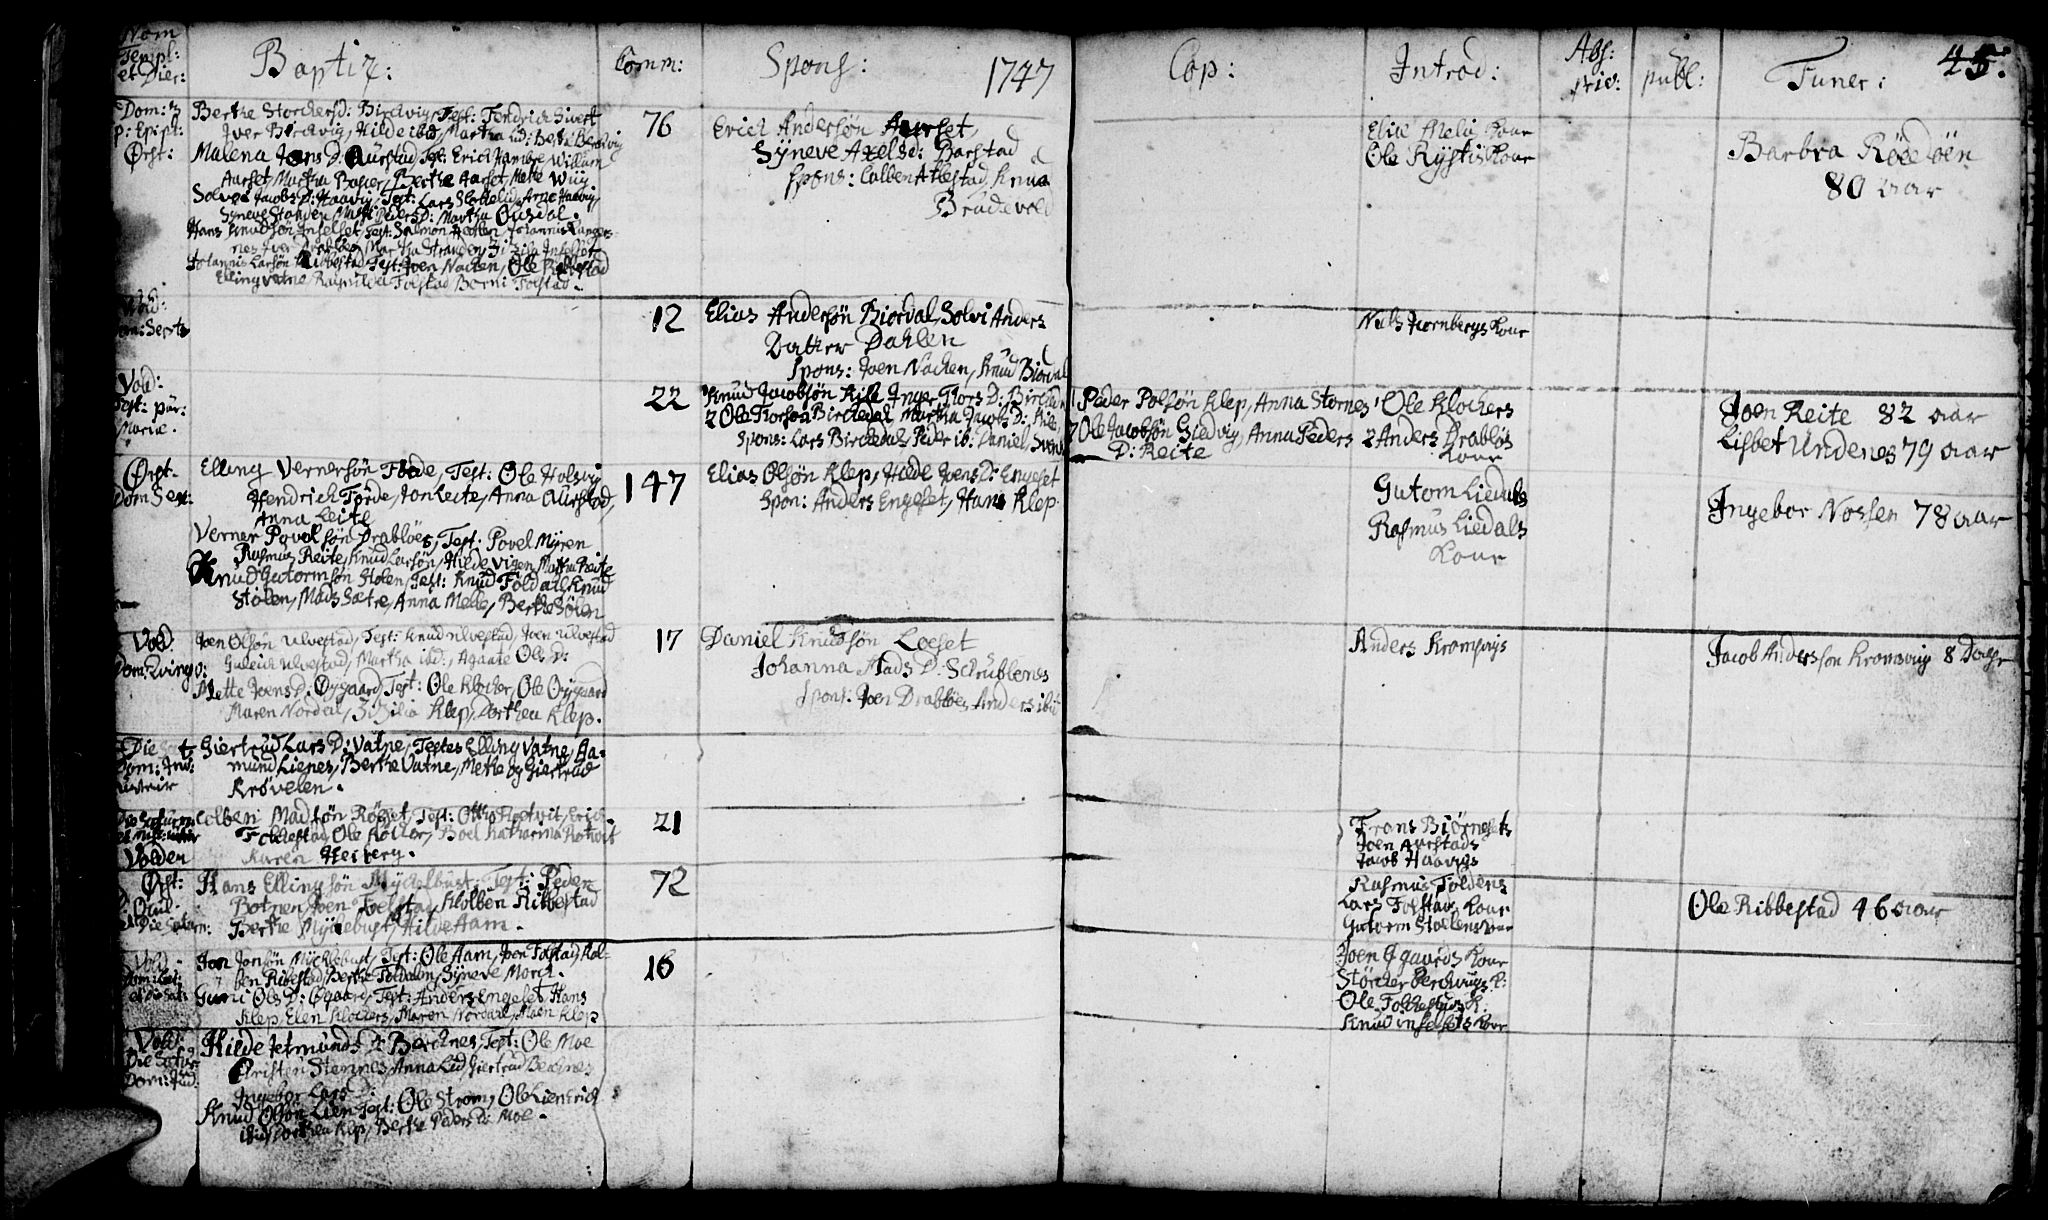 Nom
Templ:
et Dier:
Baptiz:
Comm:
Spons:
1747
Cop:
Introd:
Abs:
priv:
publ:
Funer:
45.
Dom: 3
p: Epiph:
Ørst:
Berthe Storchersd: Birchvig, Test: Fendrich Sivert
Iver Birchvig, Hilde ibid, Martha Lid: Berta Berchvig
Malena Jons D: Aurstad, Test: Erich Jambre Willum
Aarset, Martha Basier, Berthe Aarset, Mette Wiig
Solvei Jacobs D: Haavig, Test: Lars Slettelid, Arne Haavig,
Syneve Standen, Marte Peders D: Martha Ousdal.
Hans Knudsøn Inselset Test: Salmon Høften, Johannis Langes-
nes Iver Drabløes, Martha Stranden, Zizilia Inselset
Johannis Larsøn Ribbestad, Test: Joen Nacken, Ole Ribbestad
Elling Vatne, Ragnilde Folstad Borni Folstad.
76
Erich Andersøn Aarset,
Syneve Axelsd: Barstad
Spons: Colben Allestad, Knud
Bradevold
Elise Melis Kone
Ole Rystis Kone
Barbra Røedøen
80 aar
Vold:
Dom: Septu
12
Elias Andersøn Biordal, Solvi Anders
Datter Dahlen
Spons: Joen Nacken, Knud Biordal
Niels Kornbergs Kone
Vold:
Fest: pur:
Mariæ.
22
Knud Jacobsøn Kile Inger Thors D: Birchedal
2 Ole Thorsøn Birchedal, Martha Jacobs D: Kile,
Spons: Lars Birchedal, Peder ib: Daniel, Svend
1 Peder Polsøn Klep, Anna Stornes
2 Ole Jacobsøn Giedvig, Anna Peders
D: Reite
1 Ole Klochers
2 Anders Drabløs
Kone
Joen Reite 82 aar
Lisbet Undenes 79 aar
Ørst.
Dom Sex:
Elling Vernersøn Førde, Test: Ole Holsvig
Hendrich Førde, Jon Leite, Anna Aurstad,
Anna Leite
Verner Povelsøn Drabløes, Test: Povel Myren
Rasmus Reite, Knud Larsøn, Hilde Vigen Martha Reite
Knud Gutormsøn Stolen, Test: Knud Foldal Knud
Stolen, Mads Sætre, Anna Melle, Berthe Stolen
147
Elias Olsøn Klep, Hilde Joens D: Engeset
Spon: Anders Engeset, Hans Klep.
Gutom Liedals
Rasmus Liedals
Kone
Ingebor Nossen 78 aar
Vold
Dom: Qvinqv:
Joen Olsøn Ulvestad, Test: Knud Ulvestad, Joen Ulvestad
Guleich Ulvestad, Martha ibd:, Agaate Ols D:
Mette Joens D: Øygaard, Test: Ole Klocher, Ole Øygaard
Maren Nordal, Zizilia Klep, Dorthea Klep.
17
Daniel Knudsøn Loeset
Johanna Mads D: Schublenes
Spons: Joen Drabløes, Anders ibid
Anders Kromsvigs
Jacob Andersson Kromsvig 8 Dage
Giertrud Lars D: Vatne, Testes Elling Vatne, Aa-
mund Lienes, Berthe Vatne, Mette og Giertrud
Krøvelen.
Volden
Colben Madsøn Røyset, Test: Otto Rotvit, Erich
Folkestad, Ole Kolter, Boel Katharina Rotvit
Karen Heiberg.
21
Frans Biørnesets
Joen Aurstads
Jacob Haavigs
Ørst:
Hans Ellingsøn Myckelbust, Test: Peder
Botnen, Joen Folstad, Kolben Ribbestad
Berthe Myklebust, Hilde Aam.
72
Rasmus Foldens
Lars Folstads Kone
Gutorm Stolens Kone
Ole Ribbestad 46 aar
Vold
Jon Jonsøn Mycklebust, Test: Ole Aam, Joen Folstad, Kol-
ben Ribestad, Berthe Foldalen, Syneve Morch.
Guni Ols D: Øgaard, Test: Anders Engeset, Hans
Klep, Elen Klochers, Maren Nordal, Maen Klep
16
Joen Øgaards Kone
Størcher Berchvigs K:
Ole Folchestads K:
Knud Inselsets Kone
Vold:
Dom: Jud
Hilde Jetmunds D: Berchnes, Test: Ole Moe
Christen Stennes, Anna Lid, Giertrud Berchnes
Ingebor Lars D:
Knud Olsøn Lien Test: Ole Strøm, Ole Lien Erich
ibid, Dorthea Klep, Berthe Peders D: Moe.